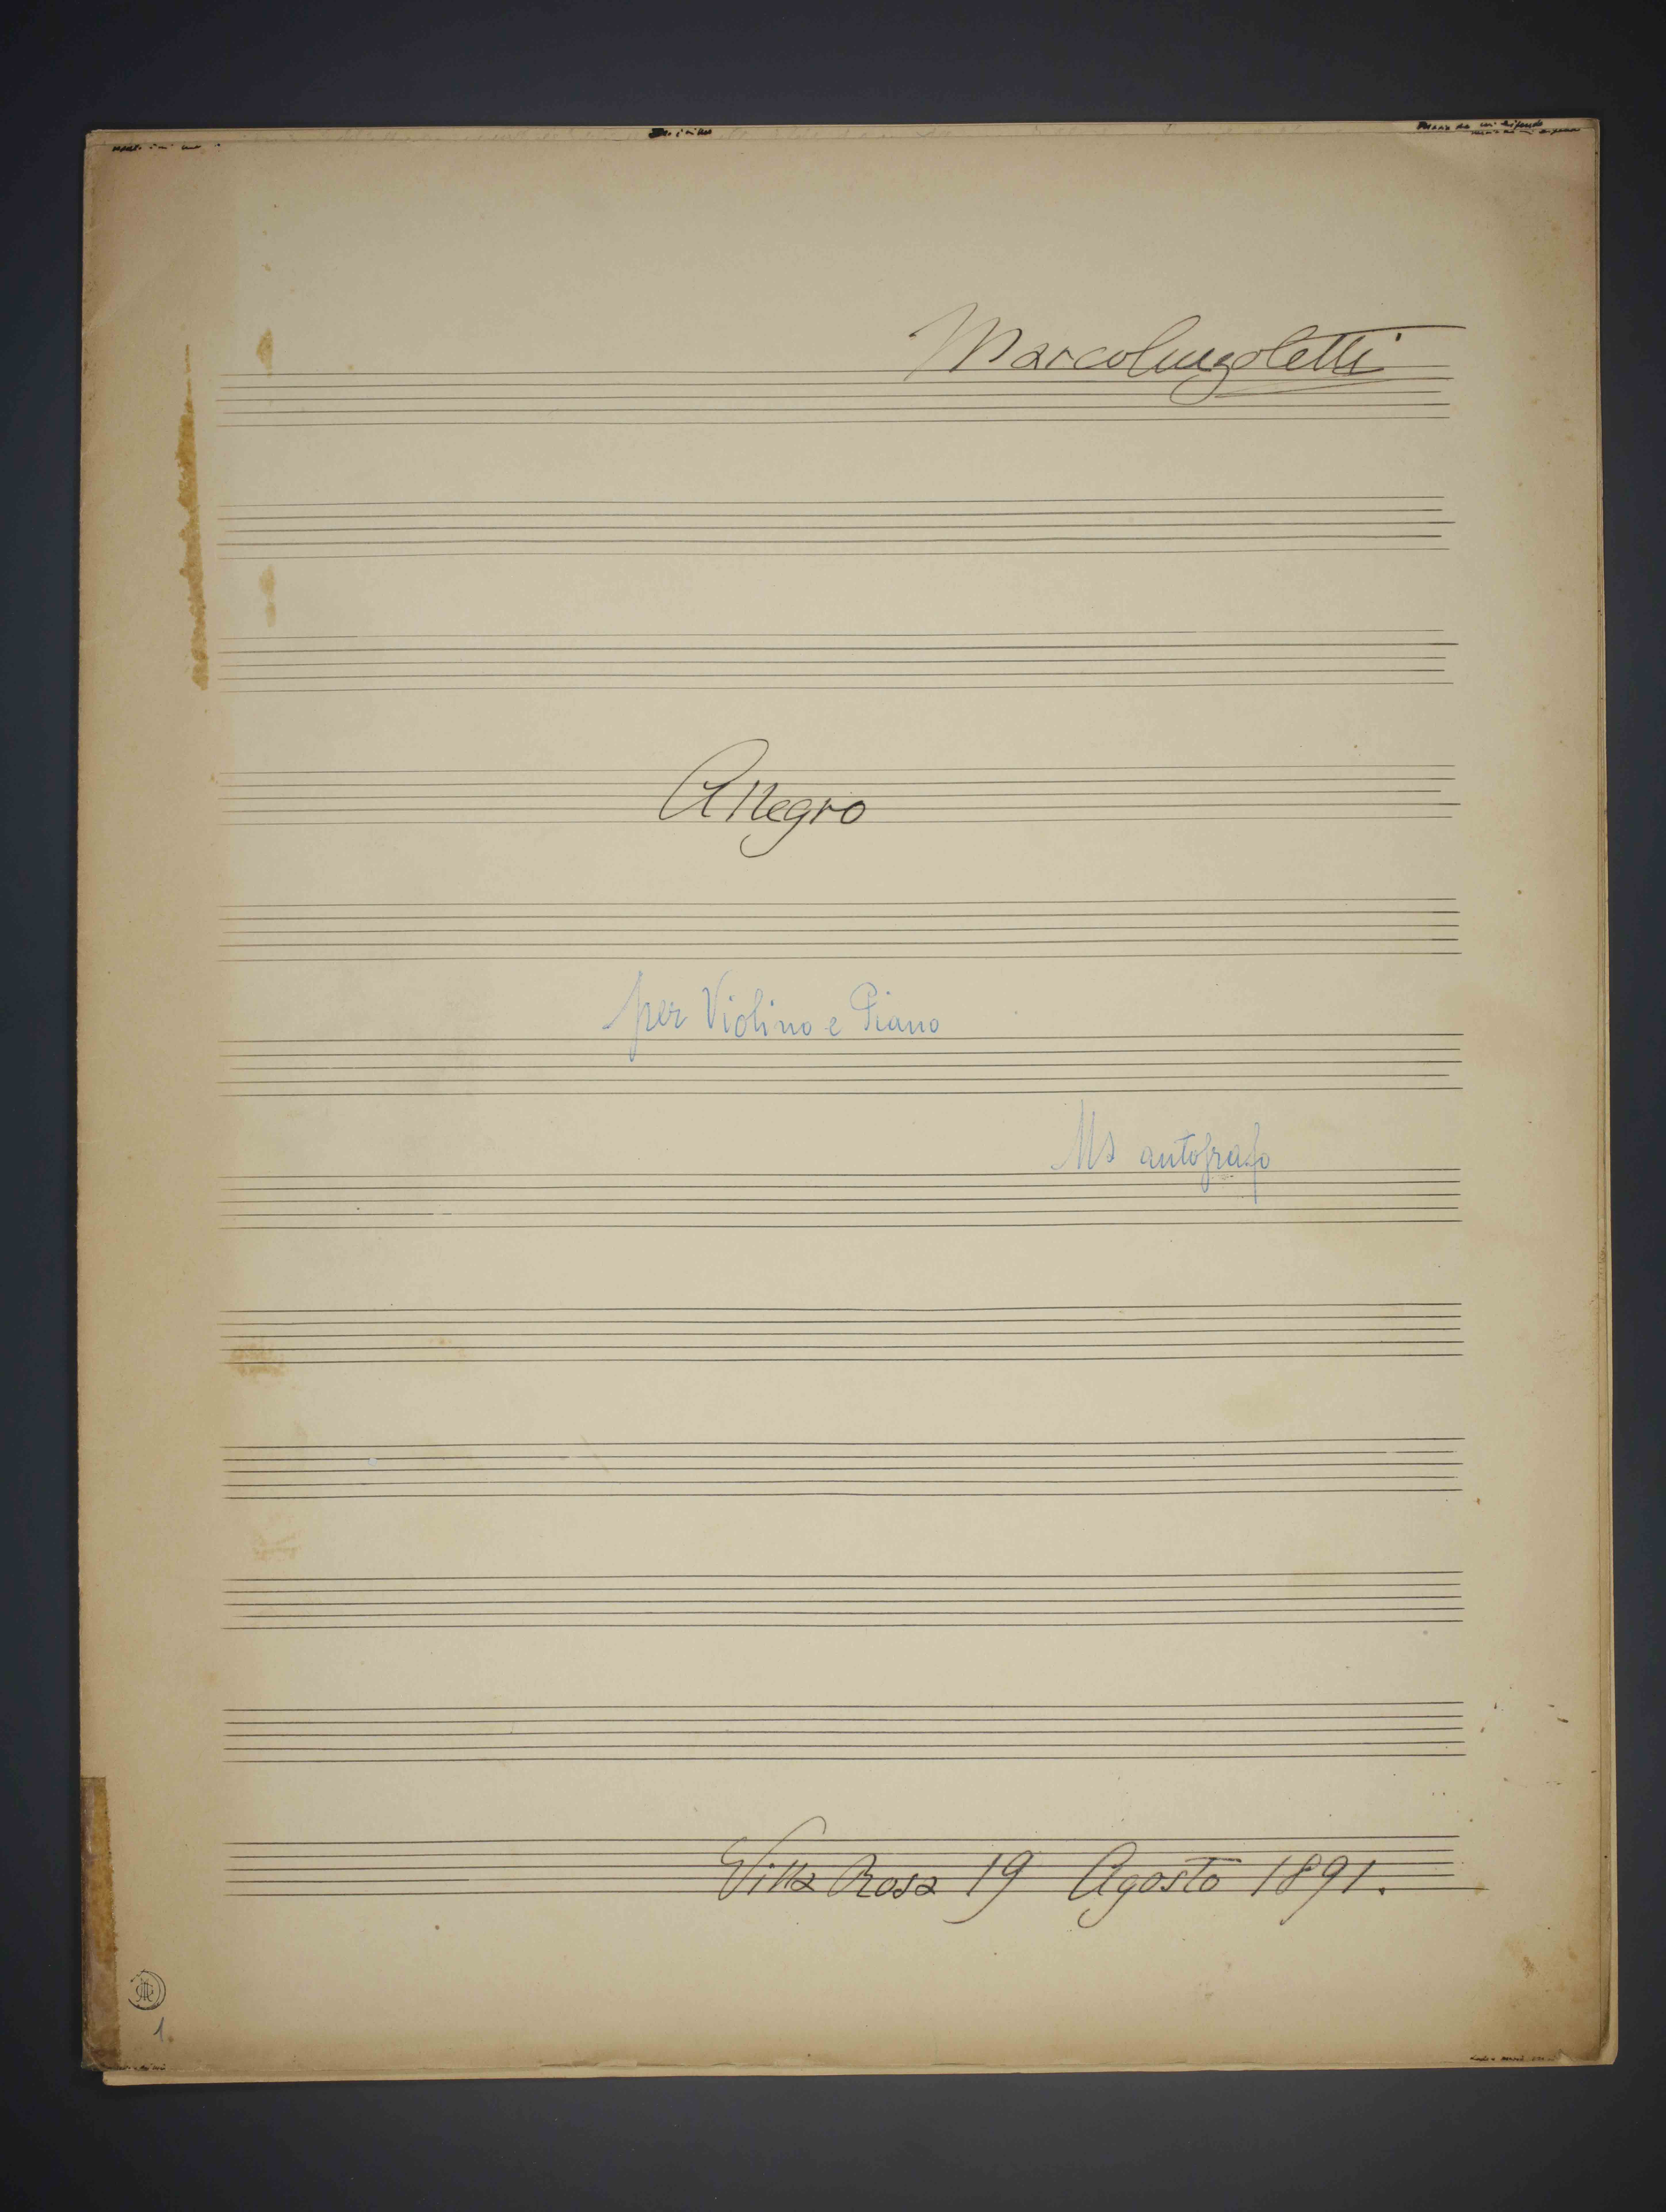 Marco Anzoletti
Allegro
per Violino e Piano
Ms autografo
Villa Rosa 19 Agosto 1891.
1